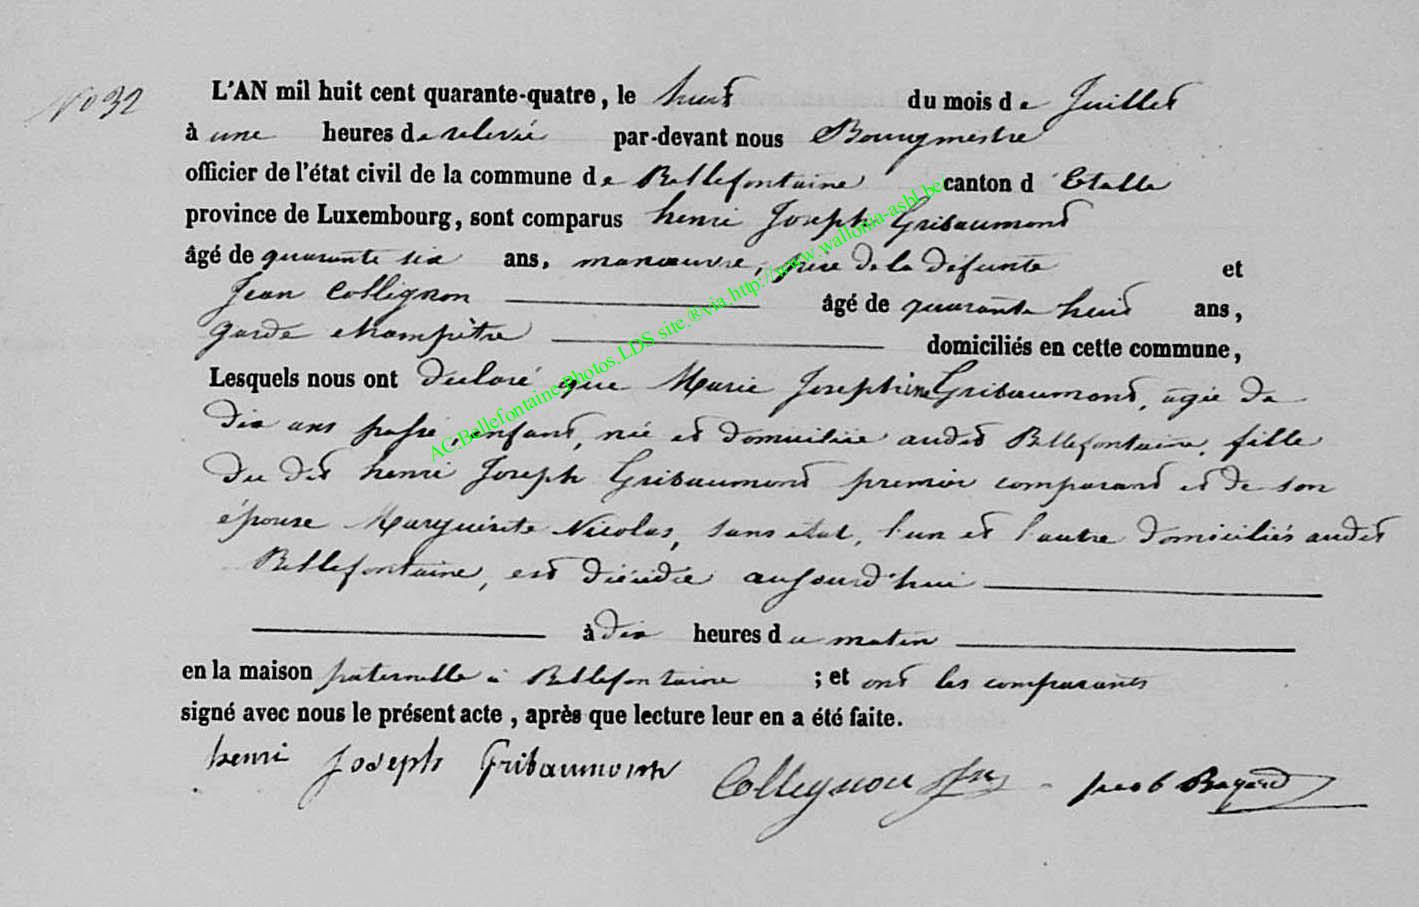 No 32
L'AN mil huit cent quarante-quatre, le huit du mois de Juillet
à une heures de relevée par-devant nous Bourgmestre
officier de l'état civil de la commune de Bellefontaine canton d'Etalle
province de Luxembourg, sont comparus henri Joseph Gribaumont
âgé de quarante six ans, manœuvre, père de la défunte et
Jean Collignon âgé de quarante huit ans,
garde champètre domiciliés en cette commune,
Lesquels nous ont déclaré que Marie Josephine Gribaumont, agée de
dix ans passé, enfant, née et domiciliée audit Bellefontaine, fille
du dit henri Joseph Gribaumont premier comparant et de son
épouse Marguérite Nicolas, sans état, l'un et l'autre domiciliés audit
Bellefontaine, est décédée aujourd'hui
à dix heures du matin
en la maison paternelle à Bellefontaine ; et ont les comparants
signé avec nous le présent acte, après que lecture leur en a été faite.
henri Joseph Gribaumont Collignon Jn Jacob Bayard
AC.Bellefontaine.Photos.LDS site.®via.http://www.wallonia-asbl.be/